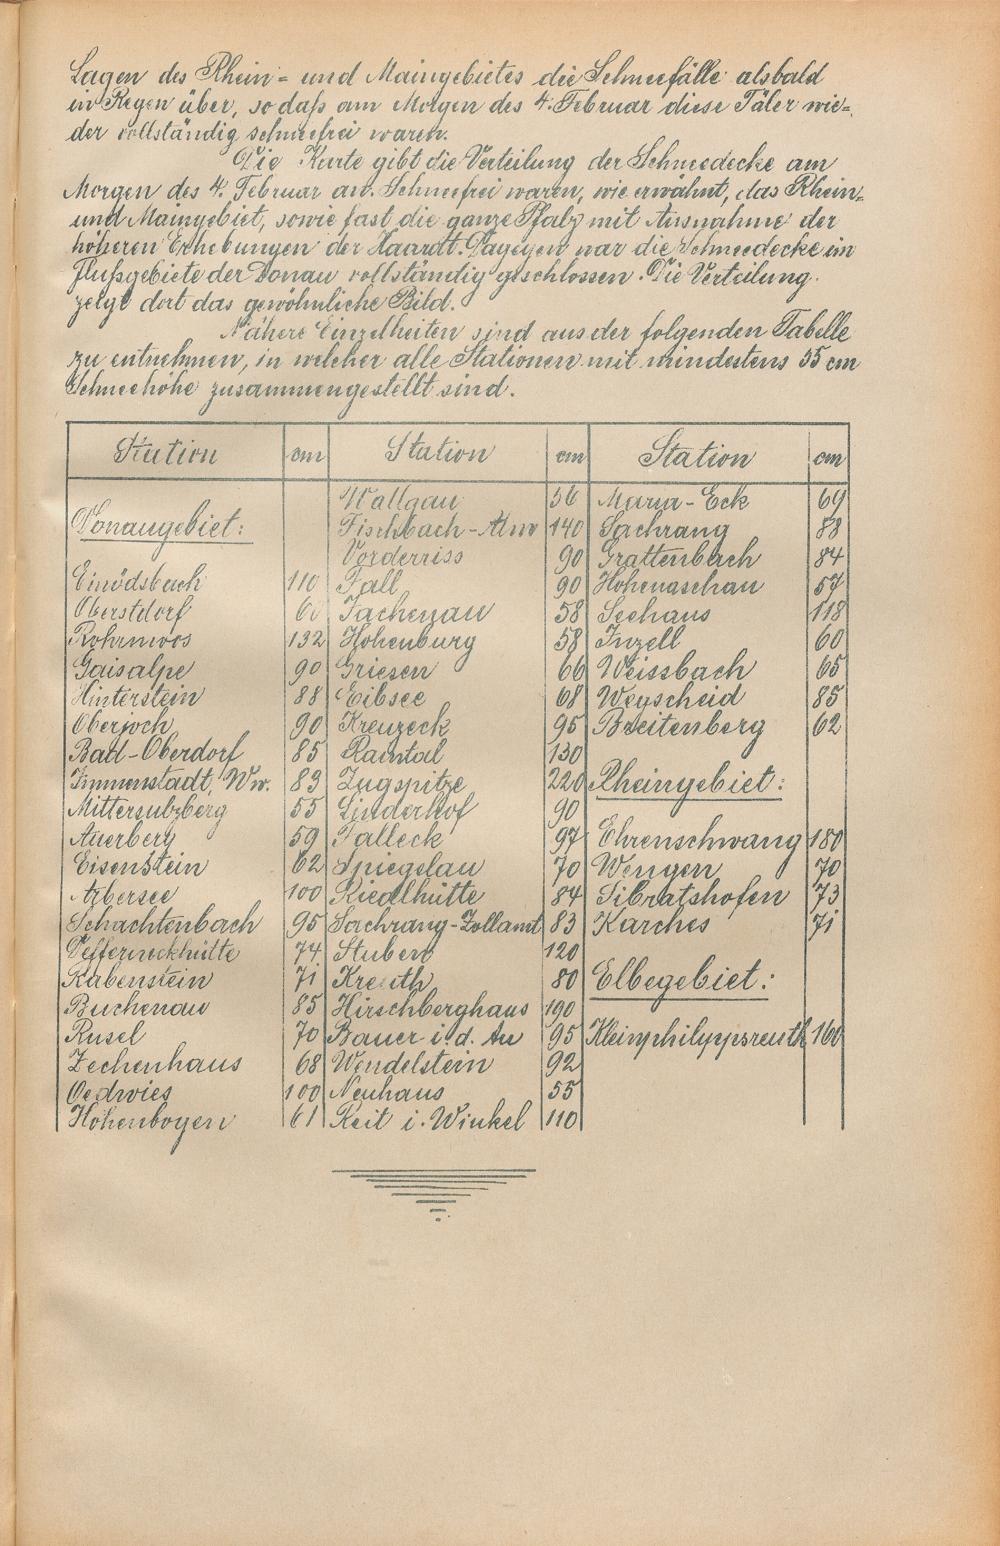 Lagen des Rhein= und Maingebietes die Schneefälle alsbald
in Regen über, so daß am Morgen des 4. Februar diese Täler wie=
der vollständig schneefrei waren.
Die Karte gibt die Verteilung der Schneedecke am
Morgen des 4. Februar an. Schneefrei waren, wie erwähnt, das Rhein=
und Maingebiet, sowie fast die ganze Pfalz mit Ausnahme der
höheren Erhebungen der Haardt. Dagegen war die Schneedecke im
Flußgebiete der Donau vollständig geschlossen. Die Verteilung
zeigt dort das gewöhnliche Bild.
Nähere Einzelheiten sind aus der folgenden Tabelle
zu entnehmen, in welcher alle Stationen mit mindestens 55 cm
Schneehöhe zusammengestellt sind.
Station cm Station cm Station cm
Wallgau 56 Maria-Eck 69
Donaugebiet: Fischbach-Alm 140 Sachrang 88
Vorderriss 90 Grattenbach 84
Einödsbach 110 Fall 90 Hohenaschau 57
Oberstdorf Jachenau 58 Seehaus 118
Rohrmoos 132 Hohenburg 58 Inzell 60
Gaisalpe 90 Griesen 66 Weissbach 65
Hinterstein 88 Eibsee 68 Wegscheid 85
Oberjoch 90 Kreuzeck 95 Breitenberg 62
Bad-Oberdorf 85 Raintal 130
Immenstadt, Ww. 83 Zugspitze 220 Rheingebiet:
Mittersulzberg 55 Linderhof 90
Auerberg 59 Falleck 97 Ehrenschwang 180
Eisenstein 62 Spiegelau 70 Wengen 70
Arbersee 100 Riedlhütte 84 Sibratshofen 73
Schachtenbach 95 Sachrang-Zollamt 83 Karches 71
74 Stuben 120
Rabenstein 71 Kreuth 80 Elbegebiet:
Buchenau 85 Hirschberghaus 190
Rusel 70 Bauer i. d. Au 95 Kleinphilippsreuth 160
Zechenhaus 68 Wendelstein 92
Oedwies 100 Neuhaus 55
Hohenbogen 61 Reit i. Winkel 110